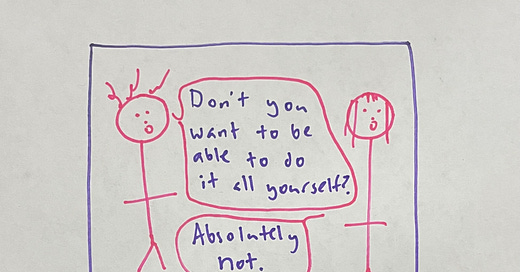 Don't you
want to be
able to do
it all yourself?
Absolutely
not.